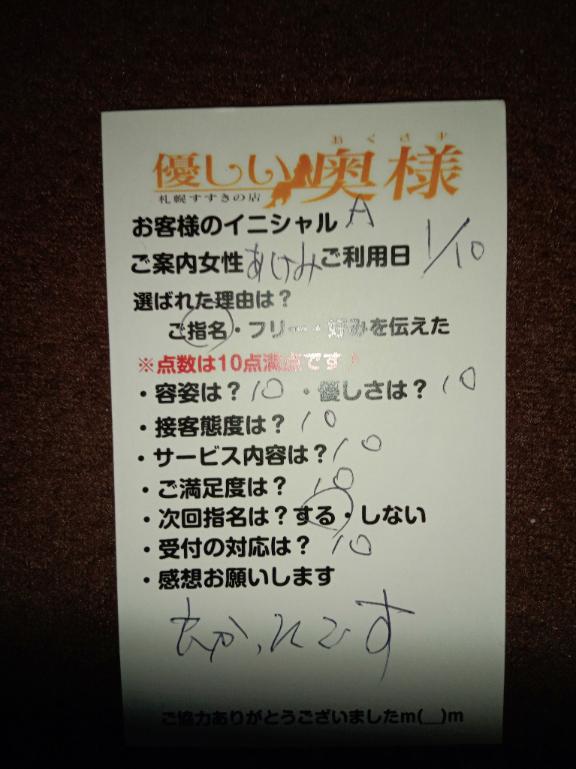 おくさま
優しい奥様
札幌すすきの店
お客様のイニシャル A
ご案内女性 あけみ ご利用日 1/10
選ばれた理由は？
ご指名・フリー・好みを伝えた
※点数は10点満点です！
・容姿は？ 10 ・優しさは？ 10
・接客態度は？ 10
・サービス内容は？ 10
・ご満足度は？ 10
・次回指名は？する・しない
・受付の対応は？ 10
・感想お願いします
よかったです
ご協力ありがとうございましたm(__)m